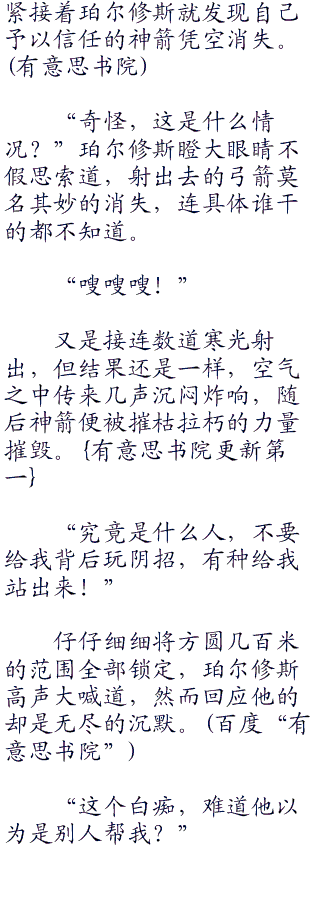 紧接着珀尔修斯就发现自己
予以信任的神箭凭空消失。
(有意思书院)
“奇怪，这是什么情
况？”珀尔修斯瞪大眼睛不
假思索道，射出去的弓箭莫
名其妙的消失，连具体谁干
的都不知道。
“嗖嗖嗖！”
又是接连数道寒光射
出，但结果还是一样，空气
之中传来几声沉闷炸响，随
后神箭便被摧枯拉朽的力量
摧毁。{有意思书院更新第
一}
“究竟是什么人，不要
给我背后玩阴招，有种给我
站出来！”
仔仔细细将方圆几百米
的范围全部锁定，珀尔修斯
高声大喊道，然而回应他的
却是无尽的沉默。(百度“有
意思书院”)
“这个白痴，难道他以
为是别人帮我？”